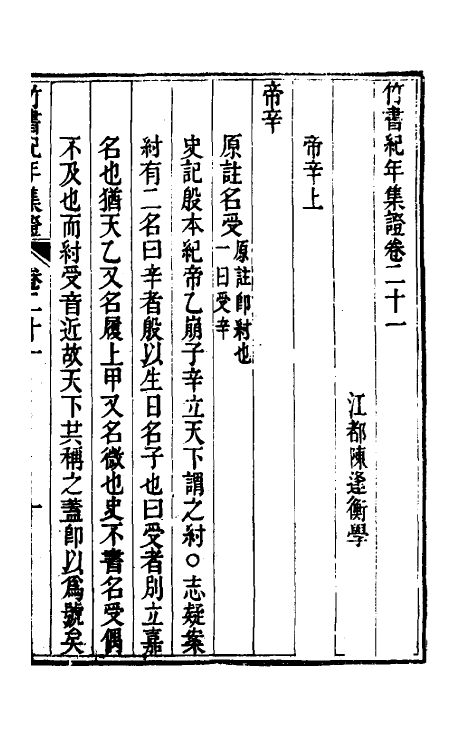 竹書紀年集證卷二十一
江都陳逢衡學
帝辛上
帝辛
原註名受原註即紂也
一曰受辛
史記殷本紀帝乙崩子辛立天下謂之紂○志疑案
紂有二名曰辛者殷以生日名子也曰受者別立嘉
名也猶天乙又名履上甲又名微也史不書名受偶
不及也而紂受音近故天下共稱之蓋即以爲號矣
竹書紀年集證 卷二十一 一